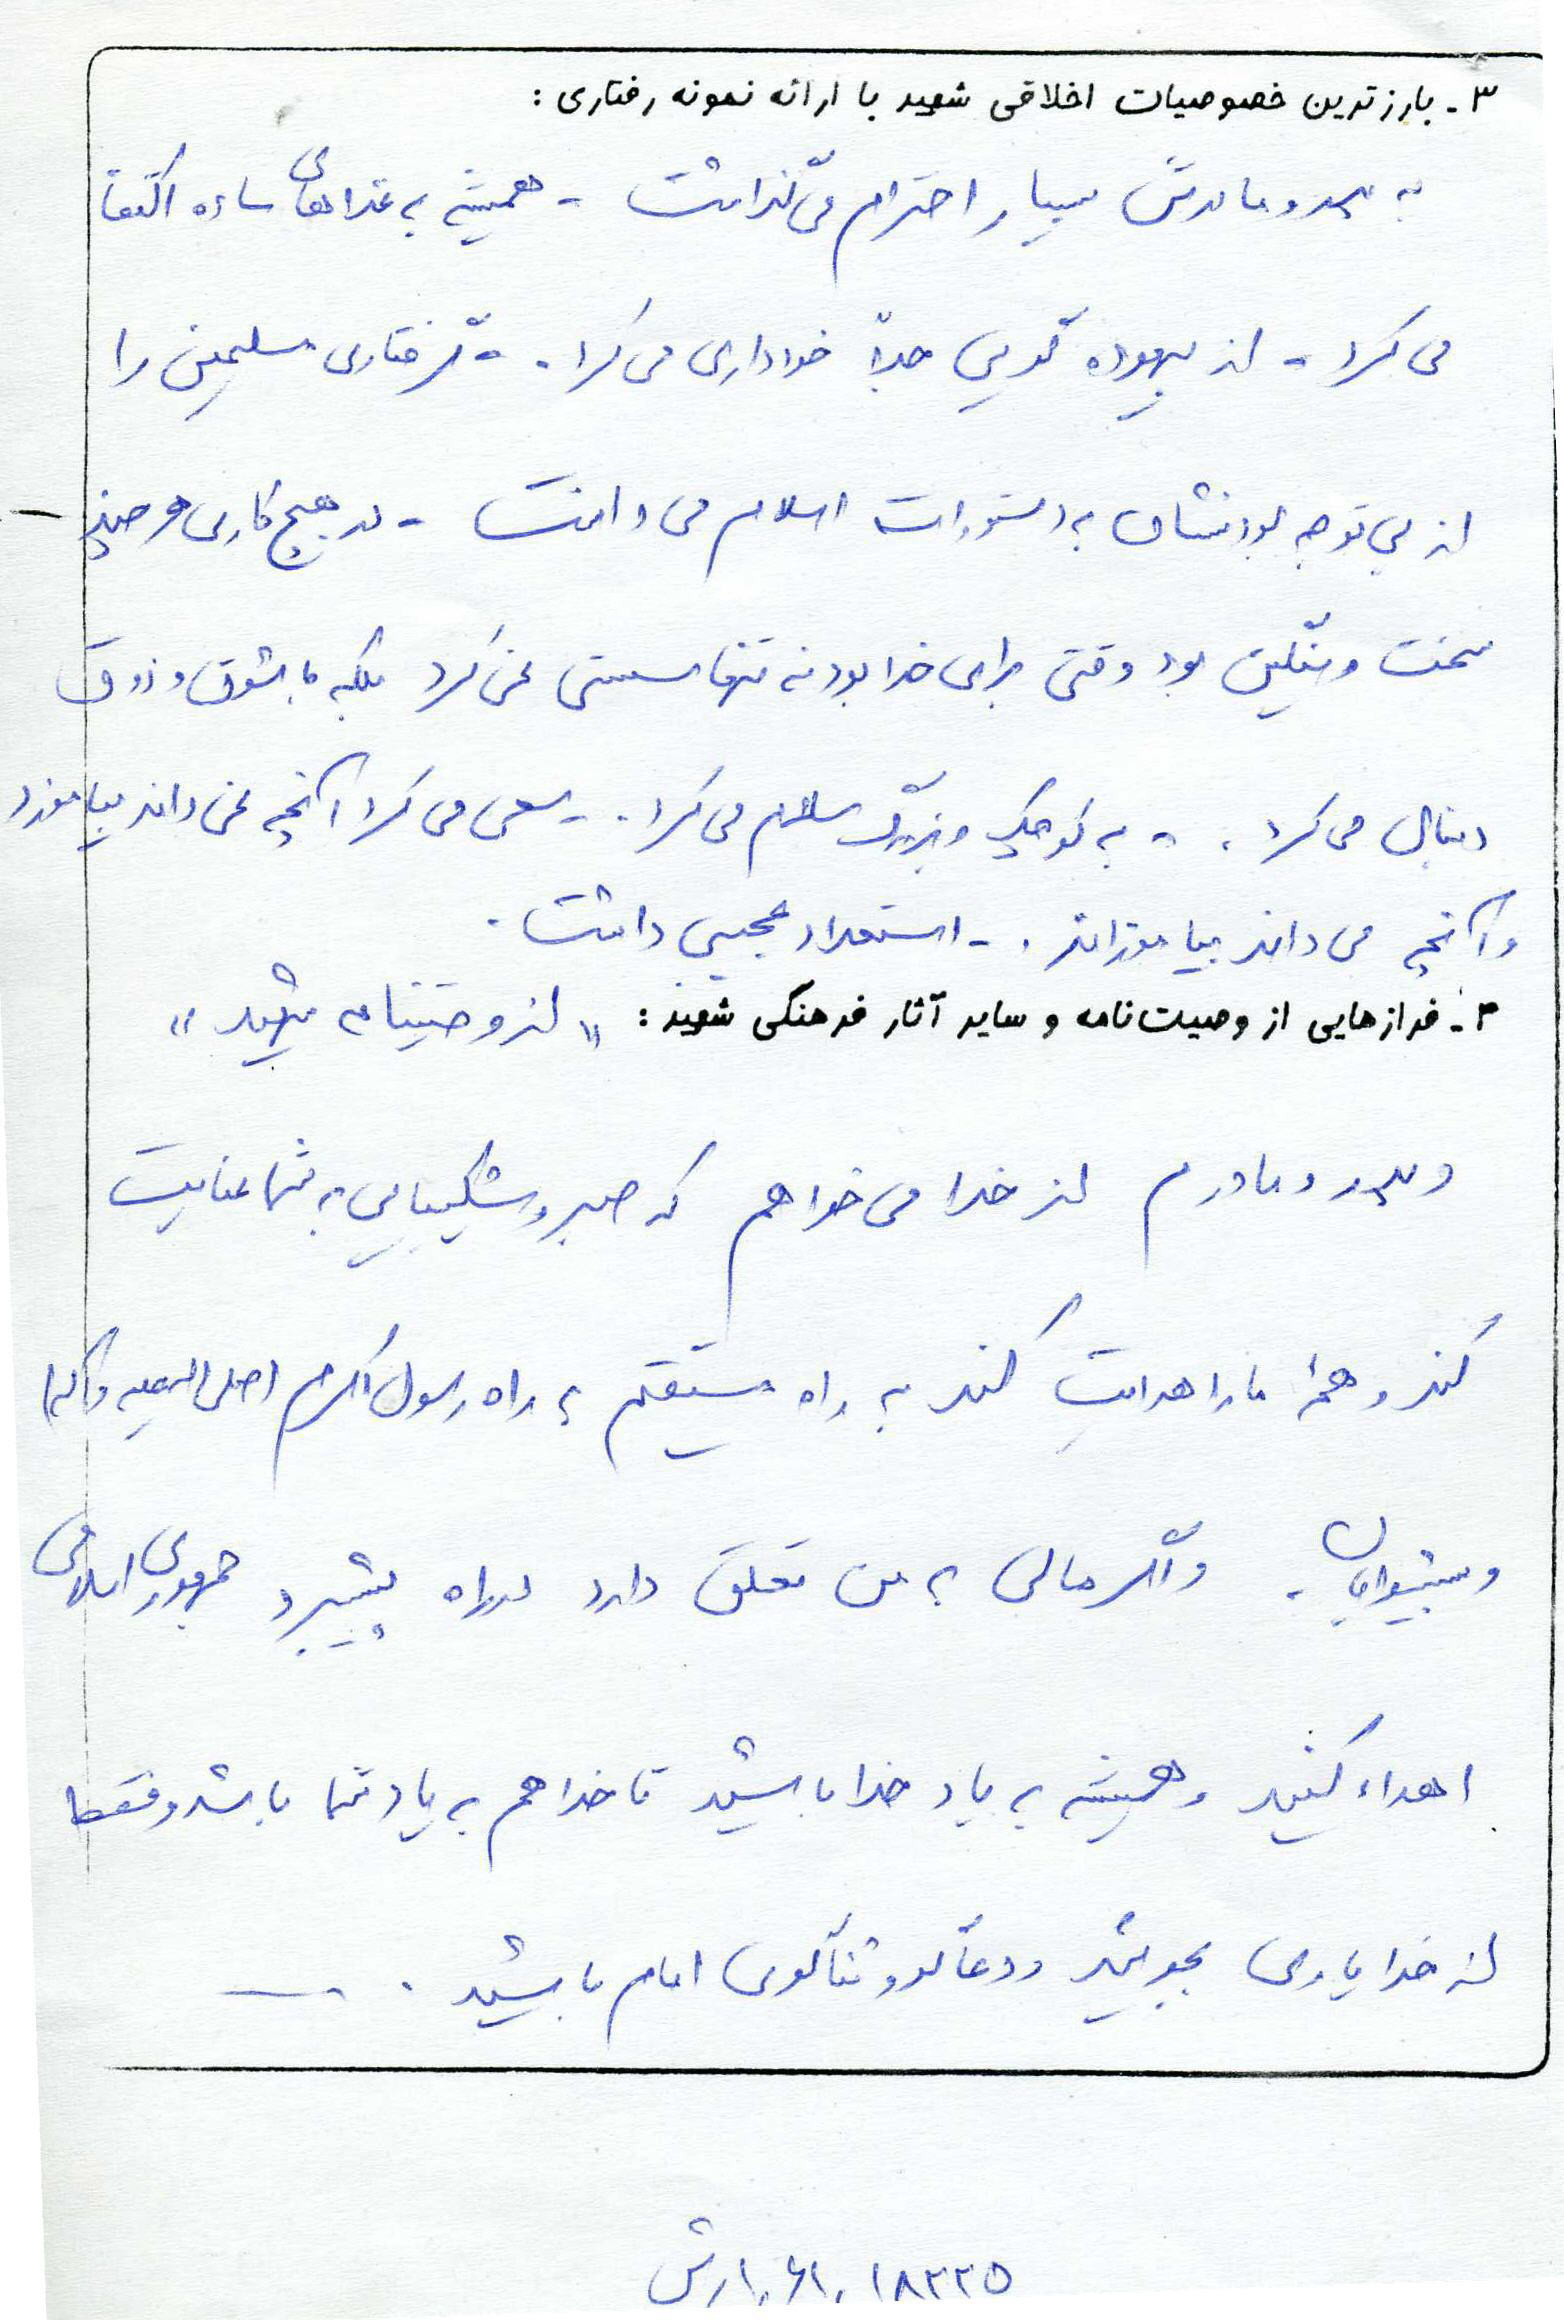 ۳ـ بارزترین خصوصیات اخلاقی شهید با ارائه نمونه رفتاری:
به پدر و مادرش بسیار احترام می‌گذاشت - همیشه به غذاهای ساده اکتفا
می‌کرد - از بیهوده گویی جداً خودداری می‌کرد. - گرفتاری مسلمین را
از بی‌توجه بودنشان به دستورات اسلام می‌دانست - در هیچ کاری هر چند
سخت و سنگین بود وقتی برای خدا بود نه تنها سستی نمی‌کرد بلکه با شوق و ذوق
دنبال می‌کرد. - به کوچک و بزرگ سلام می‌کرد. - سعی می‌کرد آنچه نمی‌داند بیاموزد
و آنچه می‌داند بیاموزاند. - استعداد عجیبی داشت.
۴ـ فرازهایی از وصیت‌نامه و سایر آثار فرهنگی شهید: «از وصیتنامه شهید»
و پدر و مادرم از خدا می‌خواهم که صبر و شکیبایی به شما عنایت
کند و همهٔ ما را هدایت کند به راه مستقیم به راه رسول اکرم (صلی الله علیه و آله)
و پیشوایان. و اگر مالی به من تعلق دارد در راه پیشبرد جمهوری اسلامی
اهداء کنید و همیشه به یاد خدا باشید تا خدا هم به یاد شما باشد و فقط
از خدا یاری بجوئید و دعاگو و ثناگوی امام باشید.
۱۸۲۲۵